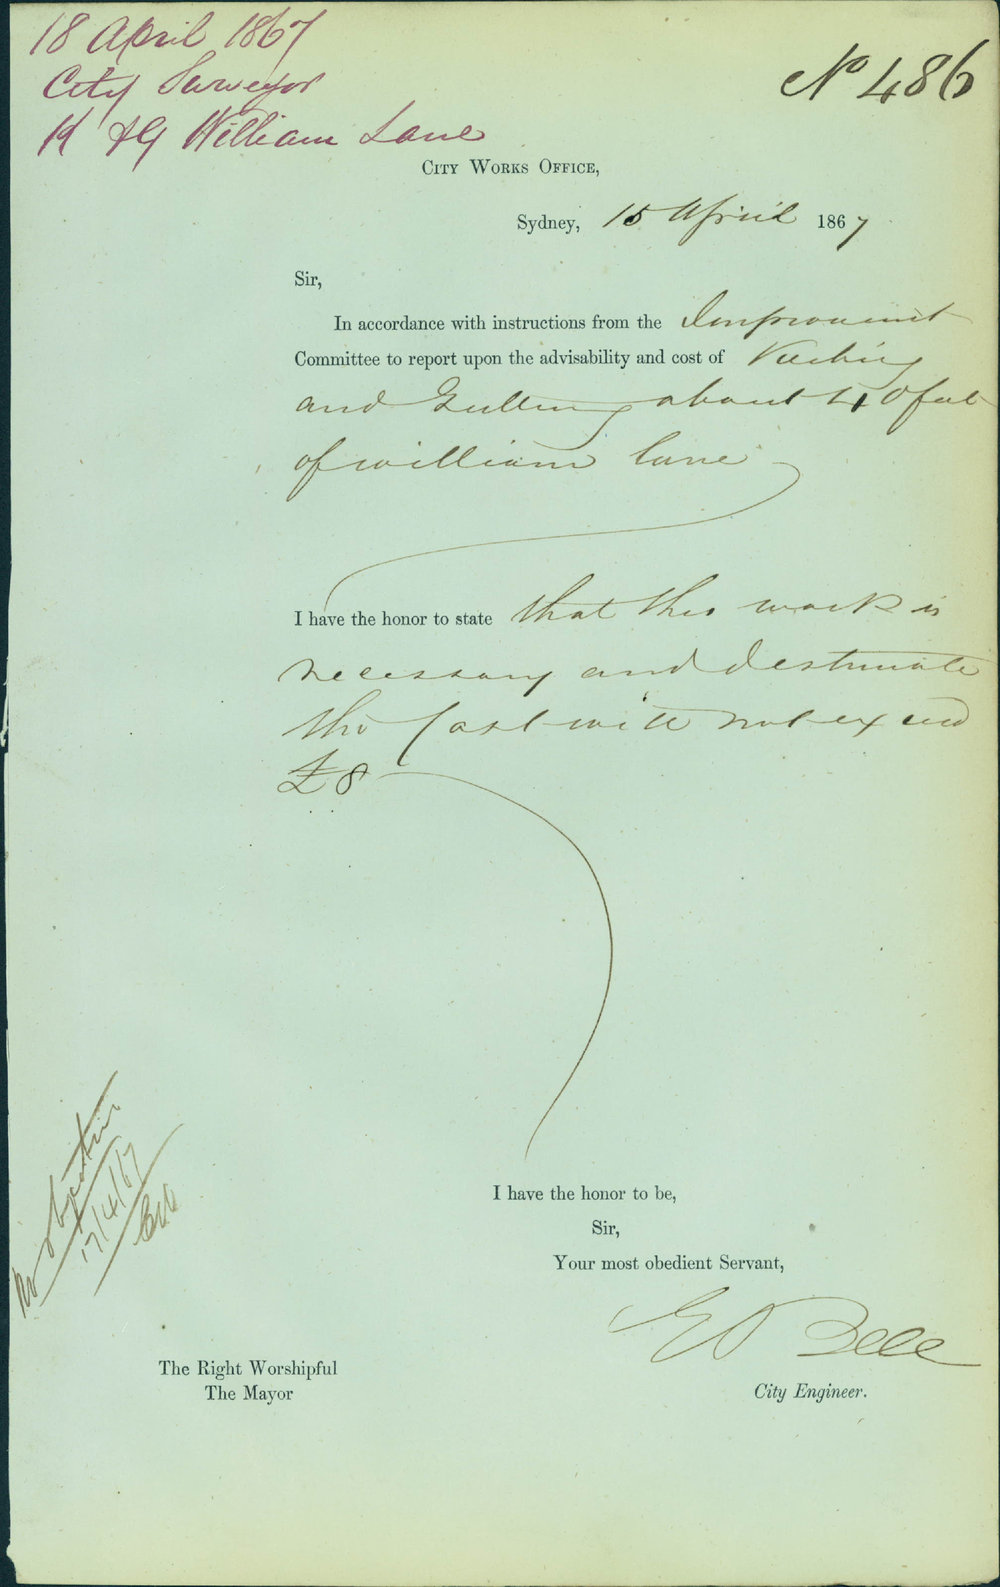 18 April 1867
City Surveyor
K & G William Lane
No 486
City Works Office,
Sydney, 15 April 1867
Sir,
In accordance with instructions from the Improvement
Committee to report upon the advisability and cost of Kerbing
and Guttering about 40 feet
of william lane
I have the honor to state that this work is
necessary and I estimate
the Cost will not exceed
£8
I have the honor to be,
Sir,
Your most obedient Servant,
E Bell
City Engineer.
The Right Worshipful
The Mayor
No objection
17/4/67